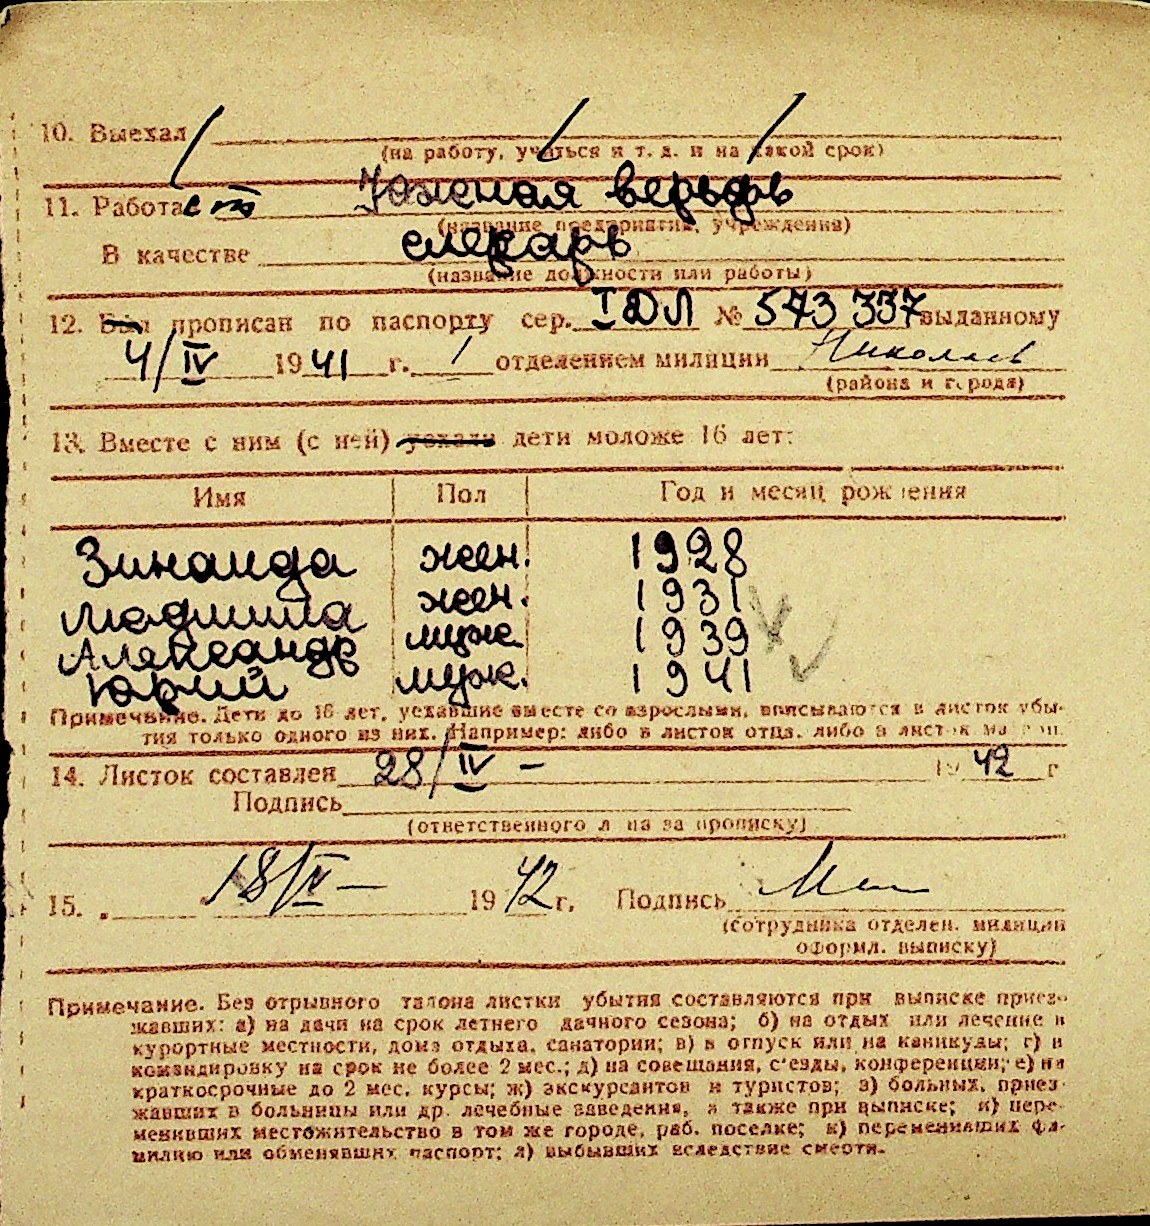 10. Выехал
(на работу, учиться и т. д. и на какой срок)
11. Работает Южная верьфь
(название предприятия, учреждения)
В качестве слекарь
(название должности или работы)
12. Был прописан по паспорту сер. I ДЛ № 573 337 выданному
4/IV 1941 г. 1 отделением милиции Николаев
(района и города)
13. Вместе с ним (с ней) уехали дети моложе 16 лет:
Имя Пол Год и месяц рождения
Зинаида жен. 1928
Людмила жен. 1931
Александр муж. 1939
Юрий муж. 1941
Примечание. Дети до 16 лет, уехавшие вместе со взрослыми, вписываются в листок убы-
тия только одного из них. Например: либо в листок отца, либо в листок матери.
14. Листок составлен 28/IV - 1942 г
Подпись
(ответственного лица за прописку)
15. 18/IV — 1942 г. Подпись
(сотрудника отделен. милиции
оформл. выписку)
Примечание. Без отрывного талона листки убытия составляются при выписке приез-
жавших: а) на дачи на срок летнего дачного сезона; б) на отдых или лечение в
курортные местности, дома отдыха, санатории; в) в отпуск или на каникулы; г) в
командировку на срок не более 2 мес.; д) на совещания, с'езды, конференции; е) на
краткосрочные до 2 мес. курсы; ж) экскурсантов и туристов; з) больных, приез-
жавших в больницы или др. лечебные заведения, а также при выписке; и) пере-
менивших местожительство в том же городе, раб. поселке; к) переменивших фа-
милию или обменявших паспорт; л) выбывших вследствие смерти.